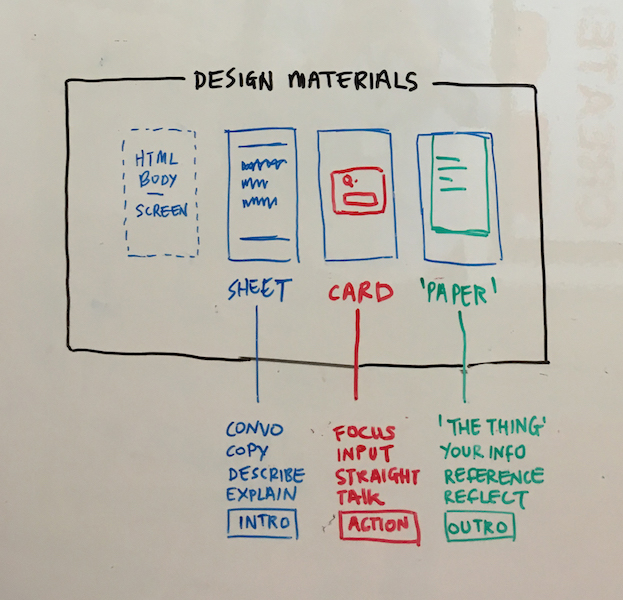 DESIGN MATERIALS
HTML
BODY
SCREEN
SHEET
CARD
'PAPER'
CONVO
COPY
DESCRIBE
EXPLAIN
INTRO
FOCUS
INPUT
STRAIGHT
TALK
ACTION
'THE THING'
YOUR INFO
REFERENCE
REFLECT
OUTRO